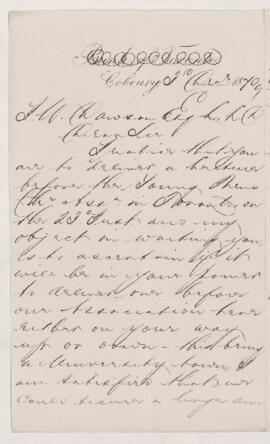 Cobourg 3d 1870
J. W. Dawson Esq L.L.D.
Dear Sir
I notice that you
are to deliver a lecture
before the Young Mens
Chr. Assn. in Toronto, on
the 23d Inst and my
object in writing you
is to ascertain if it
will be in your power
to deliver one before
our Association here
either on your way
up or down - this being
a University town, I
am satisfied that we
could secure a large au-